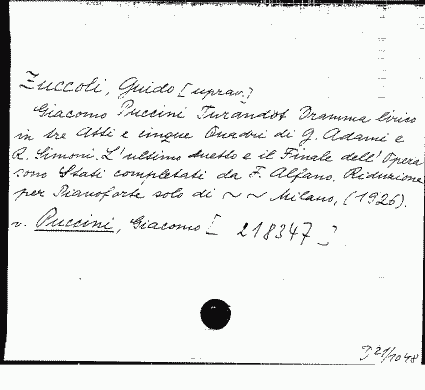 Zuccoli, Guido [uprav.]
Giacomo Puccini Turandot Dramma lirico
in tre Atti e cinque Quadri di G. Adami e
R. Simoni. L'ultimo duetto e il Finale dell'Opera
sono Stati completati da F. Alfano. Riduzione
per Pianoforte solo di ~ ~ Milano, (1926).
v. Puccini, Giacomo [ 218347 ]
21/1048